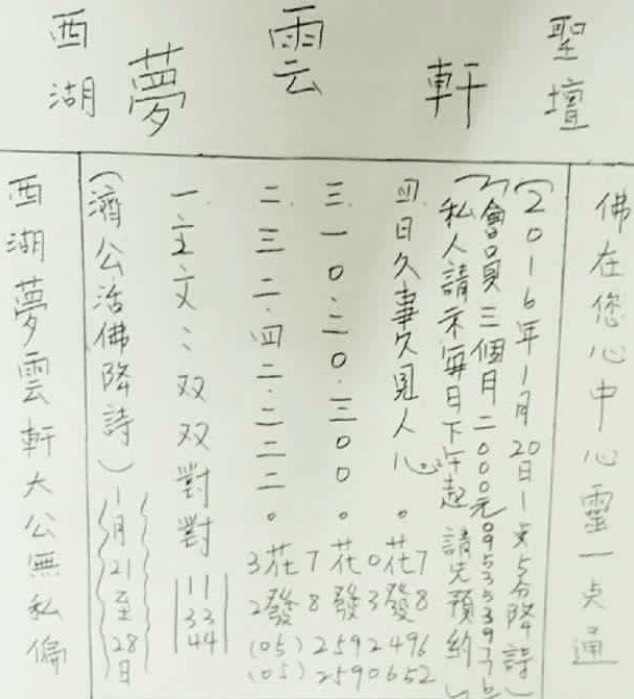 西湖 夢雲軒 聖壇
西湖夢雲軒大公無私偏
(濟公活佛降詩)1月21至28日
一.主文:双双對對
11
33
44
二.三二.四二.二二二。
三.一0.二0.三00。
四.日久事久見人心。
3花7花0花7
2發8發3發8
(05)2592496
(05)2590652
私人請示每日下午起 請先預約)
會員三個月二000元
(2016年1月20日1点5分降詩)
佛在您心中心靈一点通